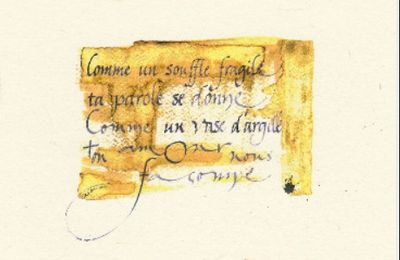 Comme un souffle fragile
ta parole se donne
Comme un vase d'argile
ton amour nous
façonne